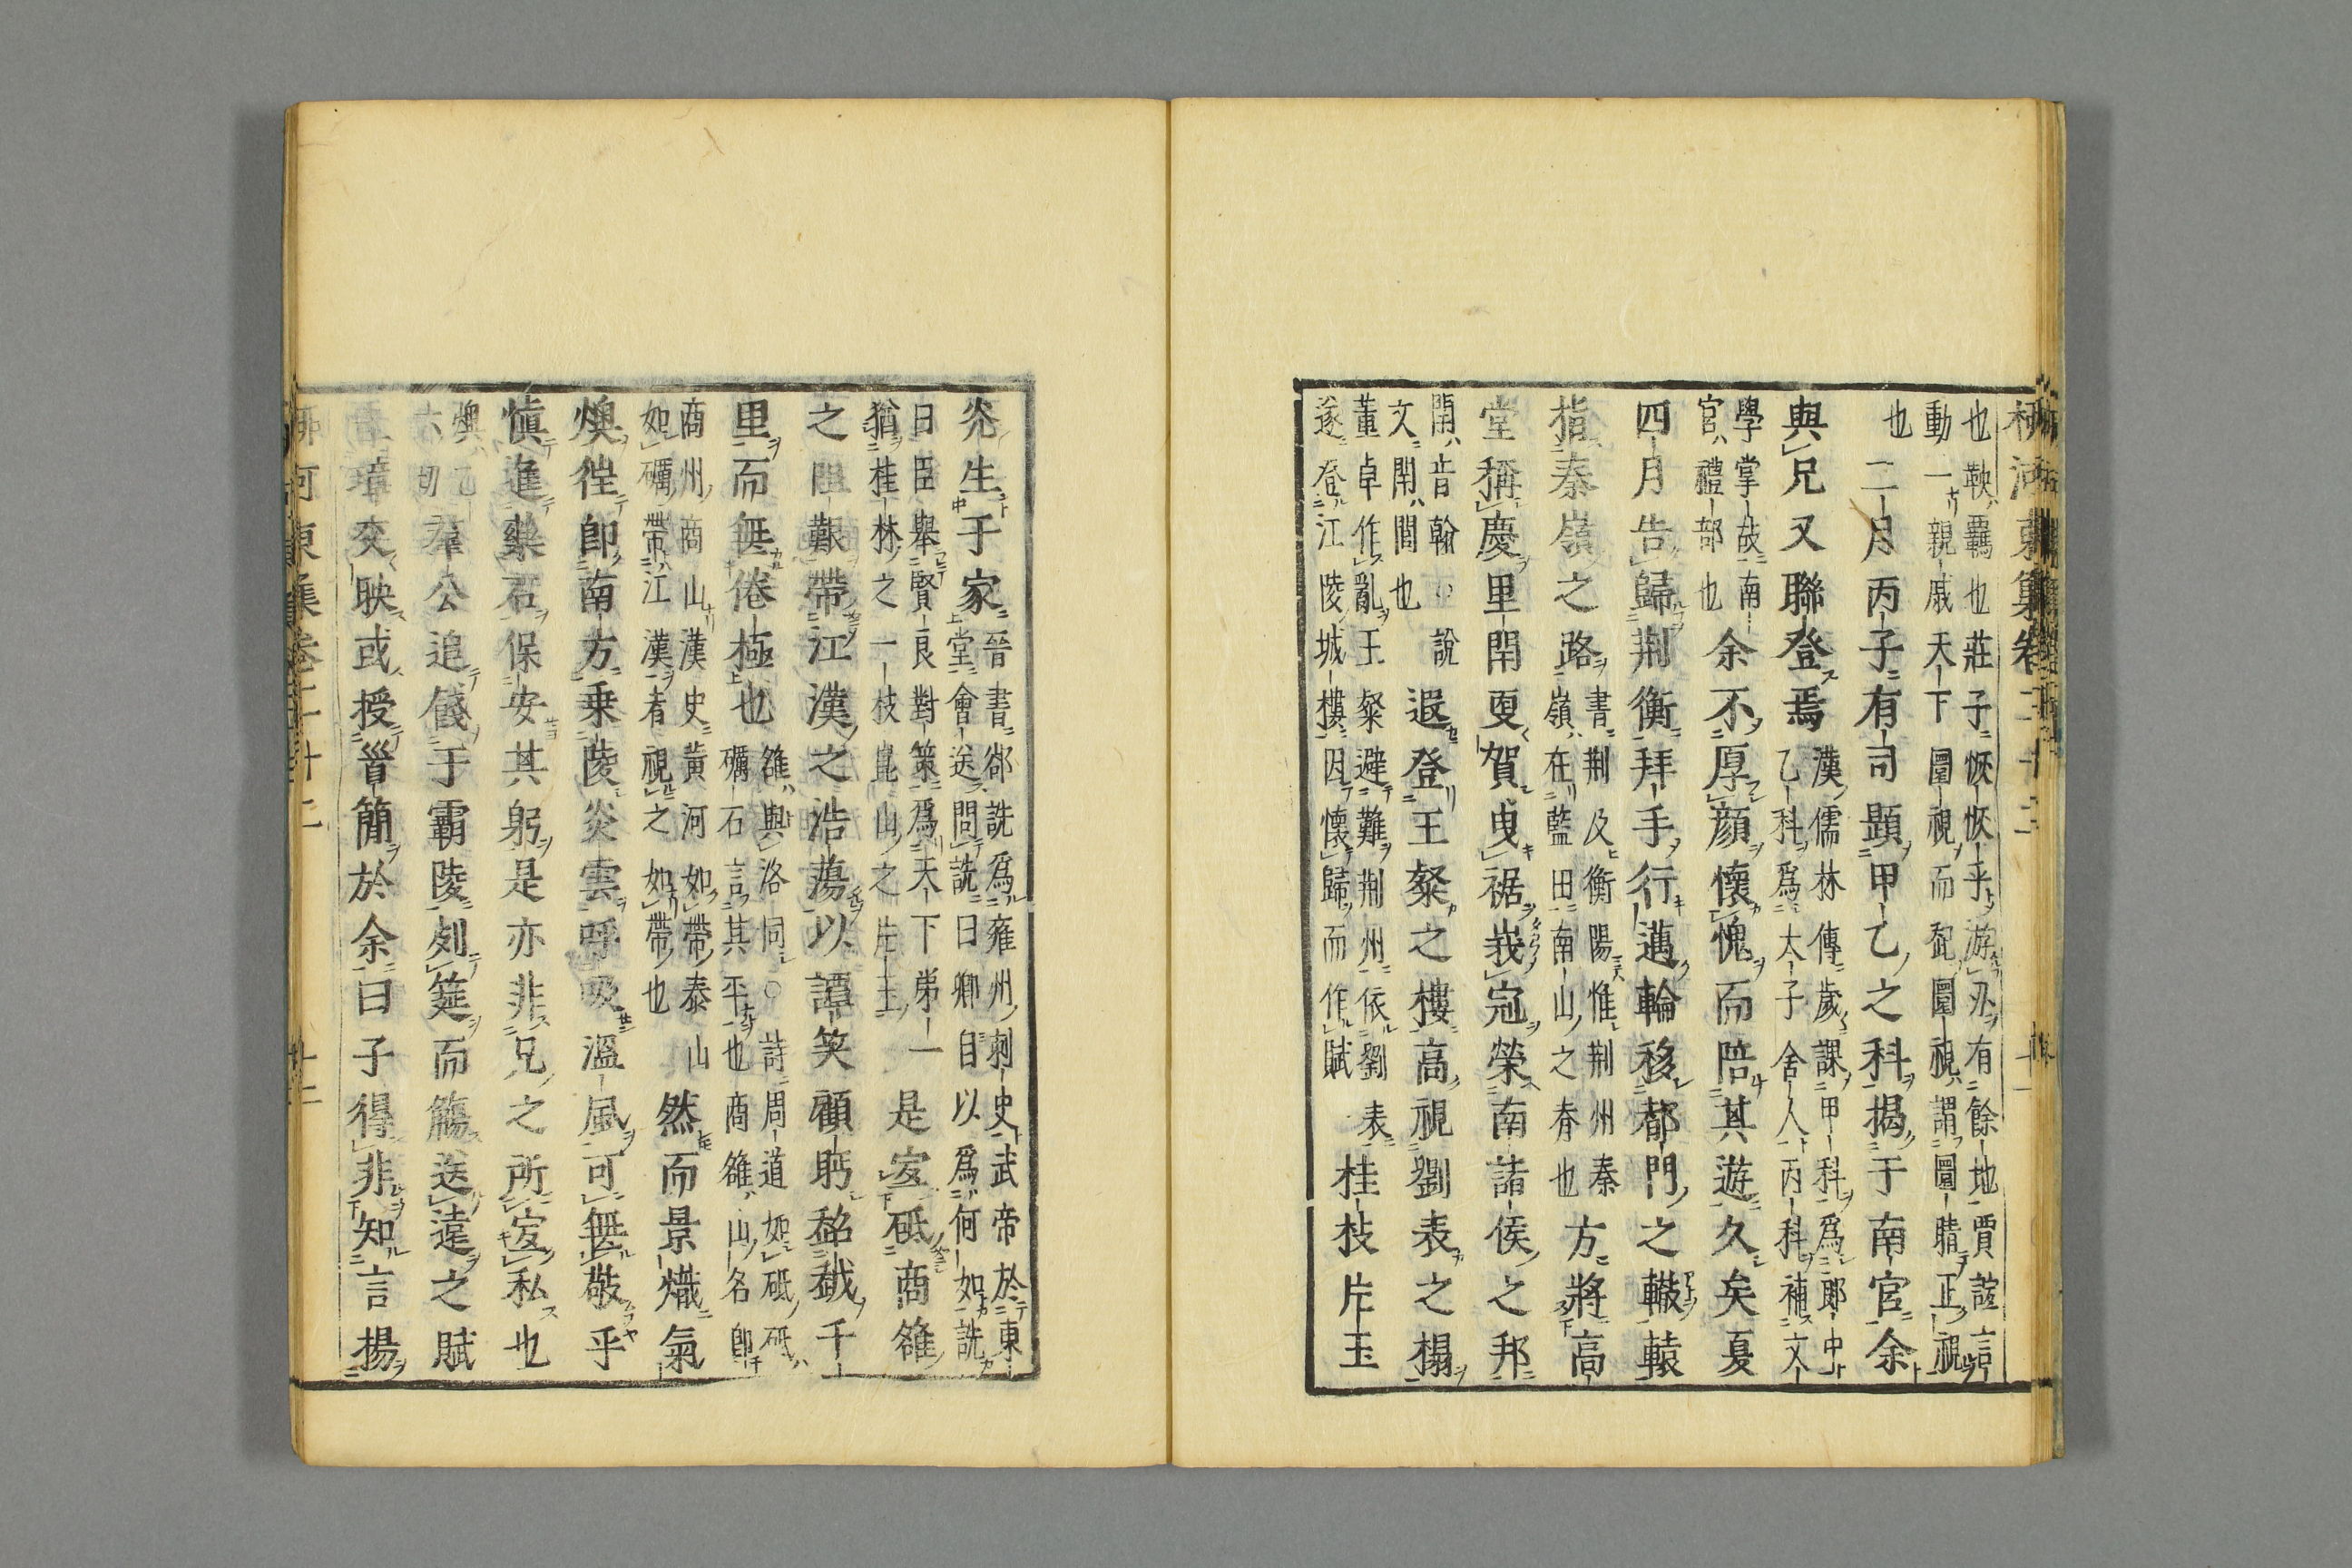 柳河東集卷二十二
也鞅羈也莊子恢恢乎游刃有餘地賈誼言
動一親戚天下圜視而起圜視謂圜睛正視
也 二月丙子有司題甲乙之科揭于南宮余
與兄又聯登焉漢儒林傳歲課甲科爲郎中
乙科爲太子舍人丙科補文
學掌故南
官禮部也余不厚顔懷愧而陪其遊久矣夏
四月告歸荆衡拜手行邁輪移都門之轍轅
指秦嶺之路書荆及衡陽惟荆州秦
嶺在藍田南山之脊也方將高
堂稱慶里閈更賀曳裾峩冠榮南諸侯之邦
閈音翰說
文閈閭也遐登王粲之樓高視劉表之榻
董卓作亂王粲避難荆州依劉表
遂登江陵城樓因懷歸而作賦桂枝片玉
光生于家晉書郤詵爲雍州刺史武帝於東
堂會送問詵曰卿自以爲何如詵
曰臣舉賢良對策爲天下第一
猶桂林之一枝崑山之片玉是宜砥商雒
之阻艱帶江漢之浩蕩以譚笑顧眄超越千
里而無倦極也雒與洛同○詩周道如砥砥
礪石言其平也商雒山名即
商州商山漢史黃河如帶泰山
如礪帶江漢者視之如帶也然而景熾氣
燠往即南方乗陵炎雲呼吸溫風可無敬乎
慎進藥石保安其躬是亦非兄之所宜私也
燠乙
六切羣公追餞于霸陵列筵而觴送遠之賦
圭璋交映或授簡於余曰子得非知言揚
柳河東集卷二十二 十二